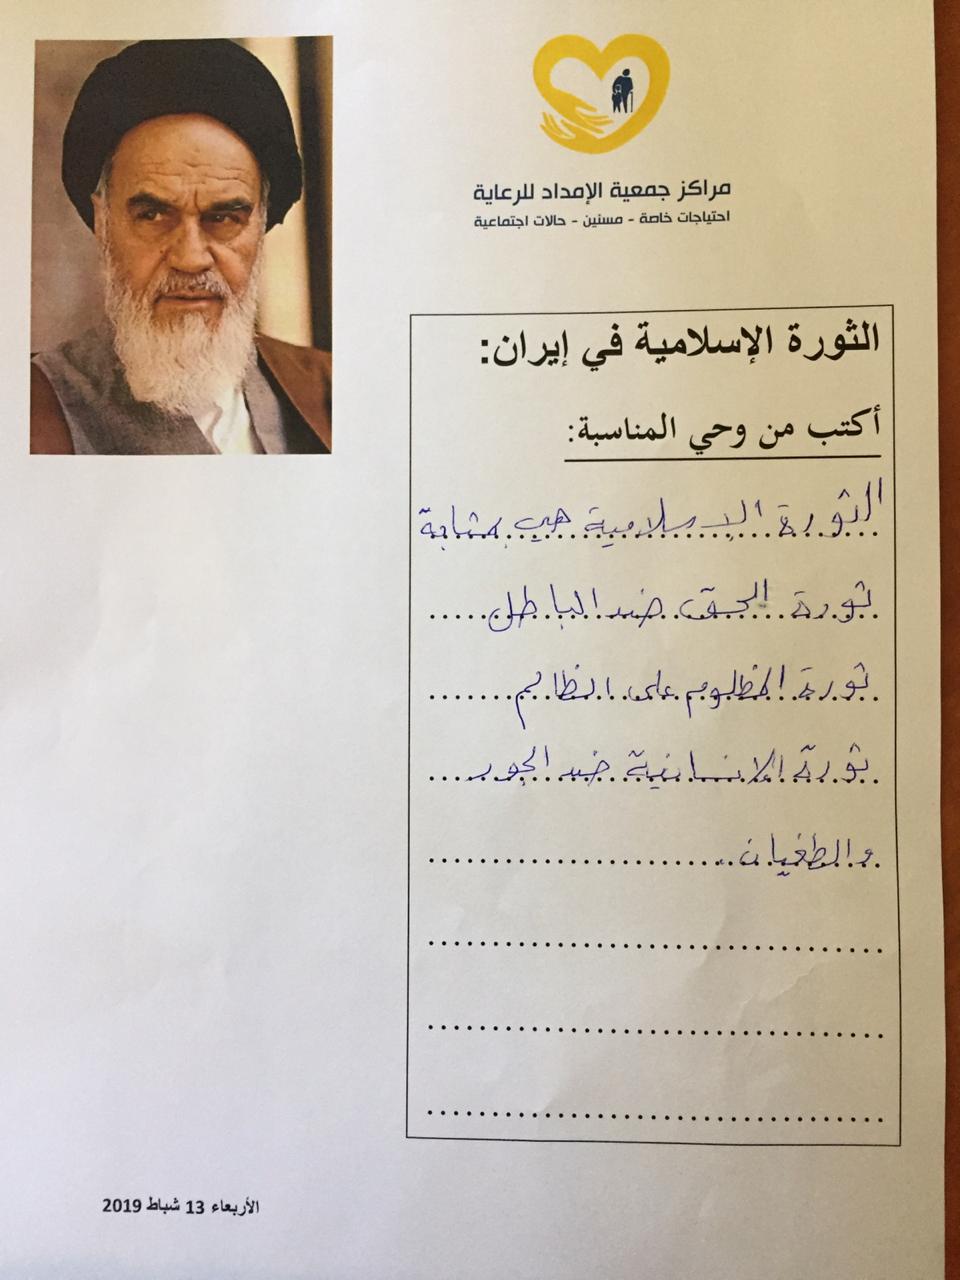 مراكز جمعية الإمداد للرعاية
احتياجات خاصة - مسنين - حالات اجتماعية
الثورة الإسلامية في إيران:
أكتب من وحي المناسبة:
الثورة الإسلامية هي بمثابة
ثورة الحق ضد الباطل
ثورة المظلوم على الظالم
ثورة الانسانية ضد الجور
والطغيان
الأربعاء 13 شباط 2019